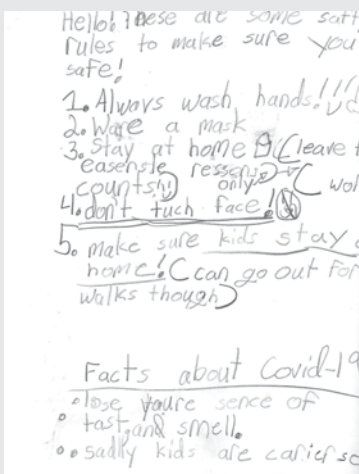 Hello! These are some saft
rules to make sure you
safe!
1. Always wash hands!!!
2. Ware a mask
3. Stay at home (leave
easensle ressens only
counts!) wol
4. don't tuch face!
5. make sure kids stay
home! (can go out for
walks though)
Facts about Covid-19
lose youre sence of
tast, and smell.
sadly kids are cariers